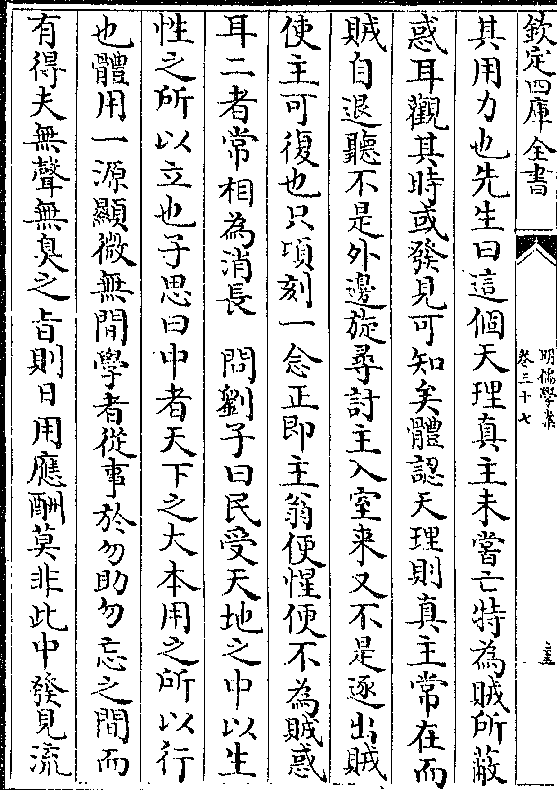 欽定四庫全書
明儒學案
卷三十七
其用力也先生曰這個天理真主未嘗亡特為賊所蔽
惑耳觀其時或發見可知矣體認天理則真主常在而
賊自退聽不是外邊旋尋討主入室来又不是逐出賊
使主可復也只項刻一念正即主翁便惺便不為賊惑
耳二者常相為消長　問劉子曰民受天地之中以生
性之所以立也子思曰中者天下之大本用之所以行
也體用一源顯微無間學者從事於勿助勿忘之間而
有得夫無聲無臭之旨則日用應酬莫非此中發見流